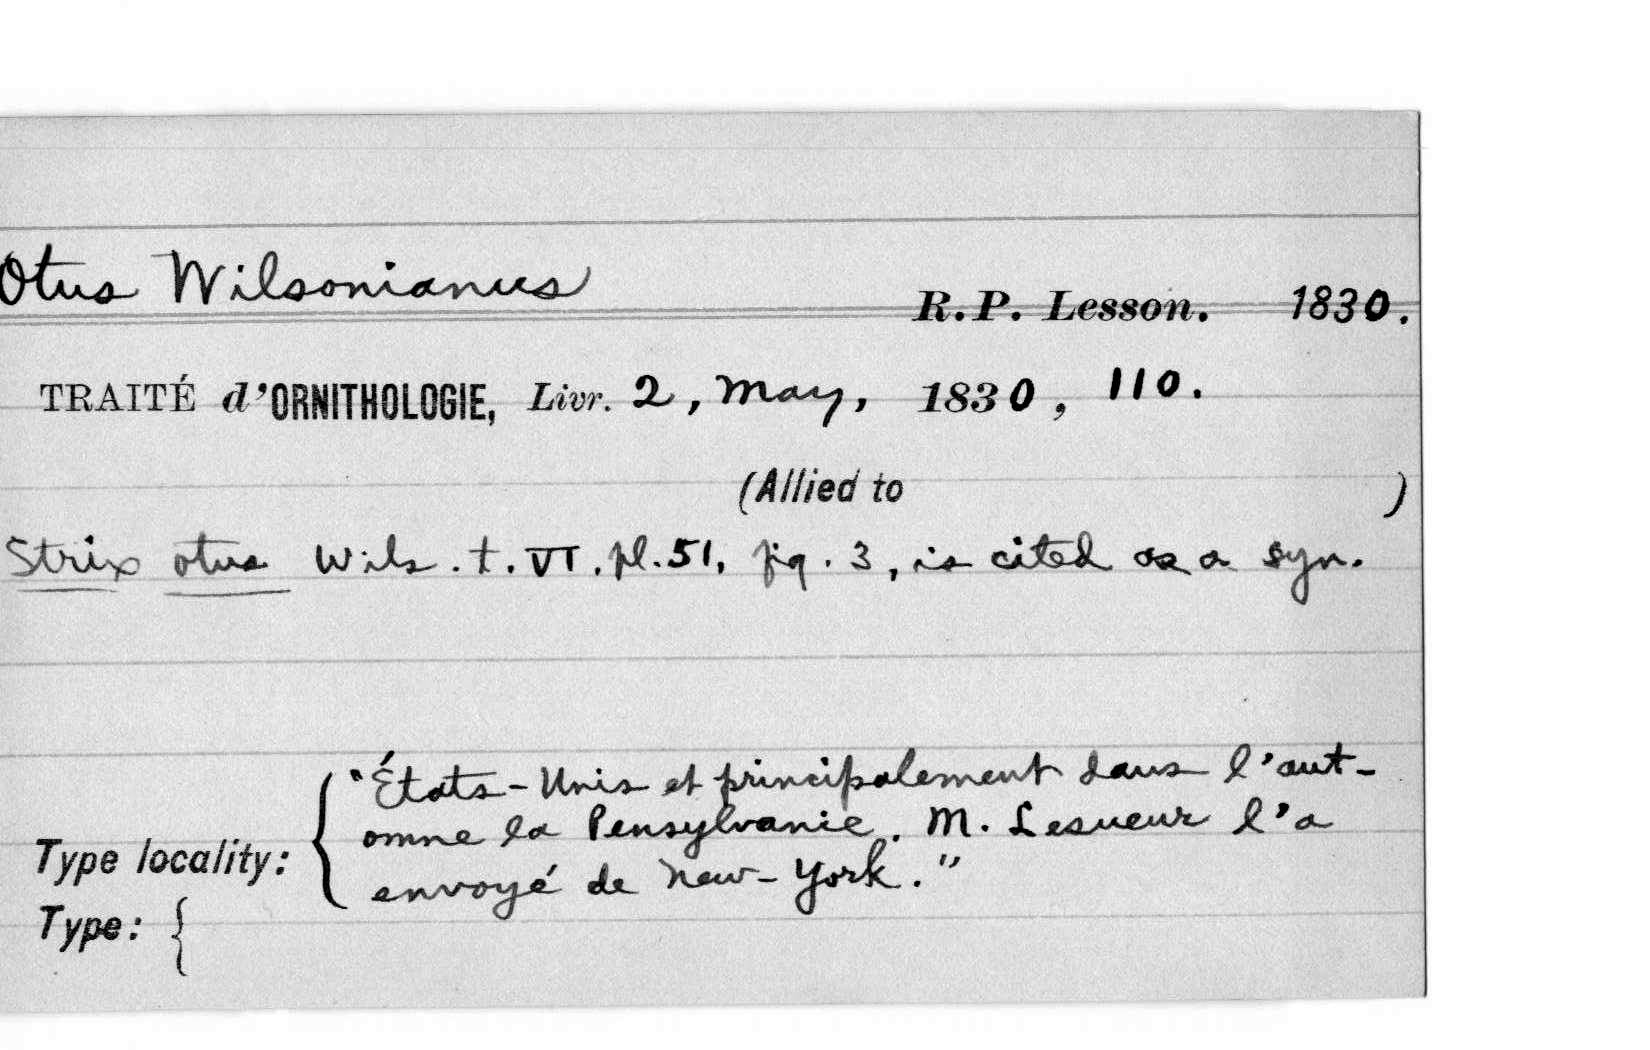 Otus Wilsonianus
R.P. Lesson. 1830.
TRAITÉ d'ORNITHOLOGIE, Livr. 2, May, 1830, 110.
(Allied to )
Strix otus Wils. t. VI. pl. 51, fig. 3, is cited as a syn.
"États-Unis et principalement dans l'aut-
omne la Pensylvanie. M. Lesueur l'a
Type locality: { envoyé de New-York."
Type: {